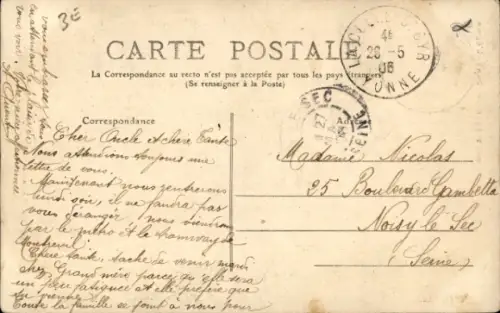 3E
CARTE POSTALE
La Correspondance au recto n'est pas acceptée par tous les pays étrangers
(Se renseigner à la Poste)
26-5
06
YONNE
SEC
27
SEINE
Correspondance
Cher Oncle et chère Tante
Nous attendions toujours une
lettre de vous.
Maintenant nous rentrerons
lundi soir, il ne faudra pas
vous déranger, nous viendrons
par le métro et le tramway de
Montreuil
Chère tante, tâche de venir manger
chez Grand'mère parce qu'elle sera
un peu fatiguée et elle préfère que
tu viennes
Toute la famille se joint à nous pour
vous embrasser
en attendant
Madame Nicolas
25 Boulevard Gambetta
Noisy le Sec
(Seine)